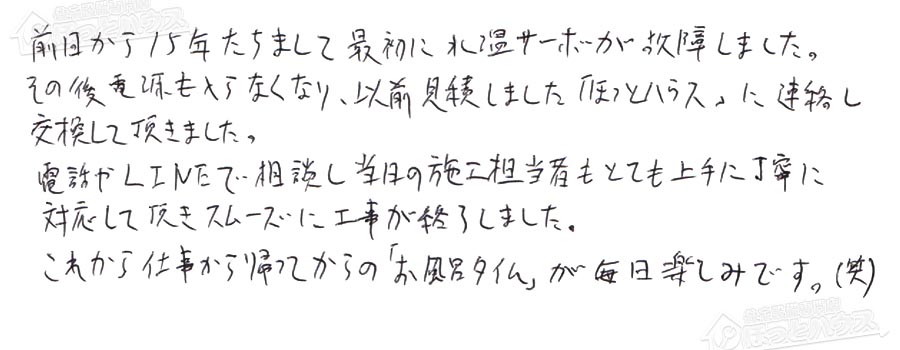 前回から15年たちまして最初に水温サーボが故障しました。
その後電源も入らなくなり、以前見積しました「ほっとハウス」に連絡し
交換して頂きました。
電話やLINEで相談し当日の施工担当者もとても上手に丁寧に
対応して頂きスムーズに工事が終了しました。
これから仕事から帰ってからの「お風呂タイム」が毎日楽しみです。(笑)
ほっとハウス